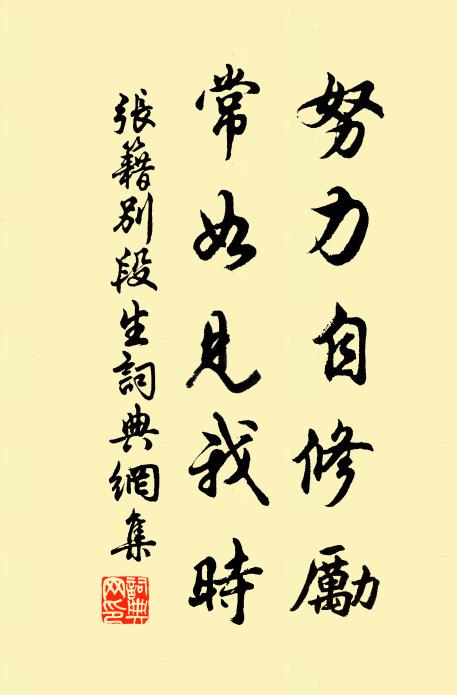 努力自修勵
常如見我時
張籍別段生詞典網集
詞典
网印